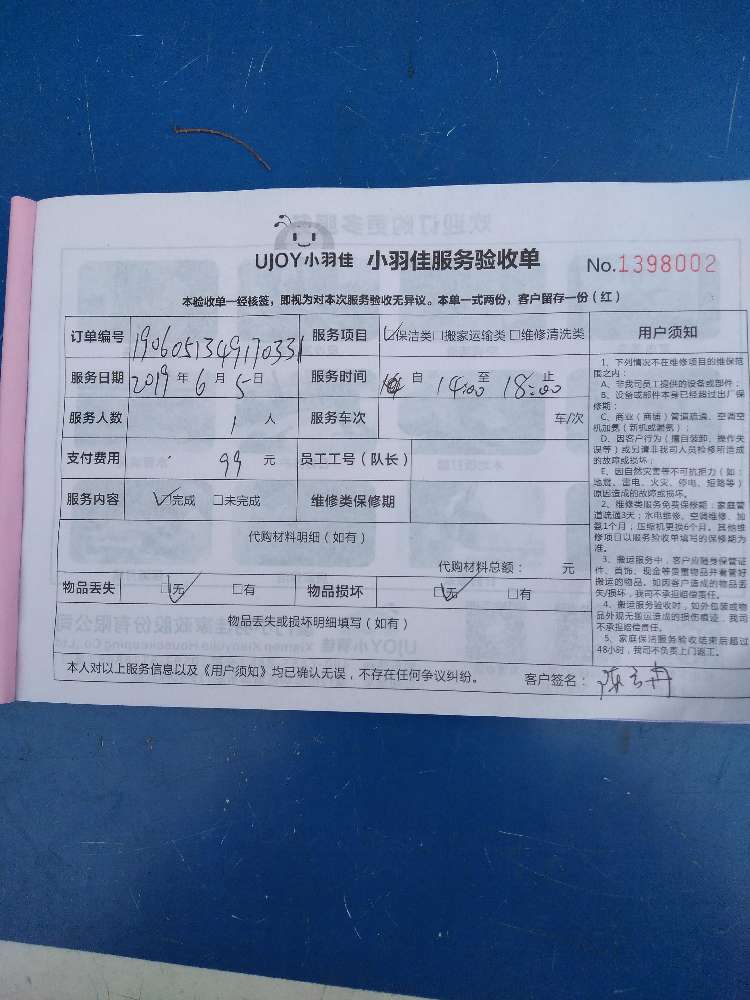 UJOY小羽佳 小羽佳服务验收单 No.1398002
本验收单一经核签，即视为对本次服务验收无异议。本单一式两份，客户留存一份（红）
订单编号 1906051349170331 服务项目 ☑保洁类□搬家运输类□维修清洗类
服务日期 2019年6月5日 服务时间 自14:00至18:00止
服务人数 1人 服务车次 车/次
支付费用 99元 员工工号（队长）
服务内容 ☑完成 □未完成 维修类保修期
代购材料明细（如有）
代购材料总额： 元
物品丢失 ☑无 □有 物品损坏 ☑无 □有
物品丢失或损坏明细填写（如有）
本人对以上服务信息以及《用户须知》均已确认无误，不存在任何争议纠纷。 客户签名：
用户须知
1、下列情况不在维修项目的维保范
围之内：
A、非我司员工提供的设备或部件；
B、设备或部件本身已经超过出厂保
修期；
C、商业（商铺）管道疏通、空调空
机加氨（新机或漏氨）；
D、因客户行为（擅自装卸、操作失
误等）或另请非我司人员检修所造成
的故障或损坏；
E、因自然灾害等不可抗拒力（如：
地震、雷电、火灾、停电、短路等）
原因造成的故障或损坏。
2、维修类服务免费保修期：家庭管
道疏通3天；水电维修、空调维修、加
氨1个月；压缩机更换6个月。其他维
修项目以服务验收单填写的保修期为
准。
3、搬运服务中，客户应随身保管证
件、首饰、现金等贵重物品并看管好
搬运的物品。如因客户造成的物品丢
失/损坏，我司不承担赔偿责任。
4、搬运服务验收时，如外包装或物
品外观无搬运造成的损伤痕迹，我司
不承担赔偿责任。
5、家庭保洁服务验收结束后超过
48小时，我司不负责上门返工。